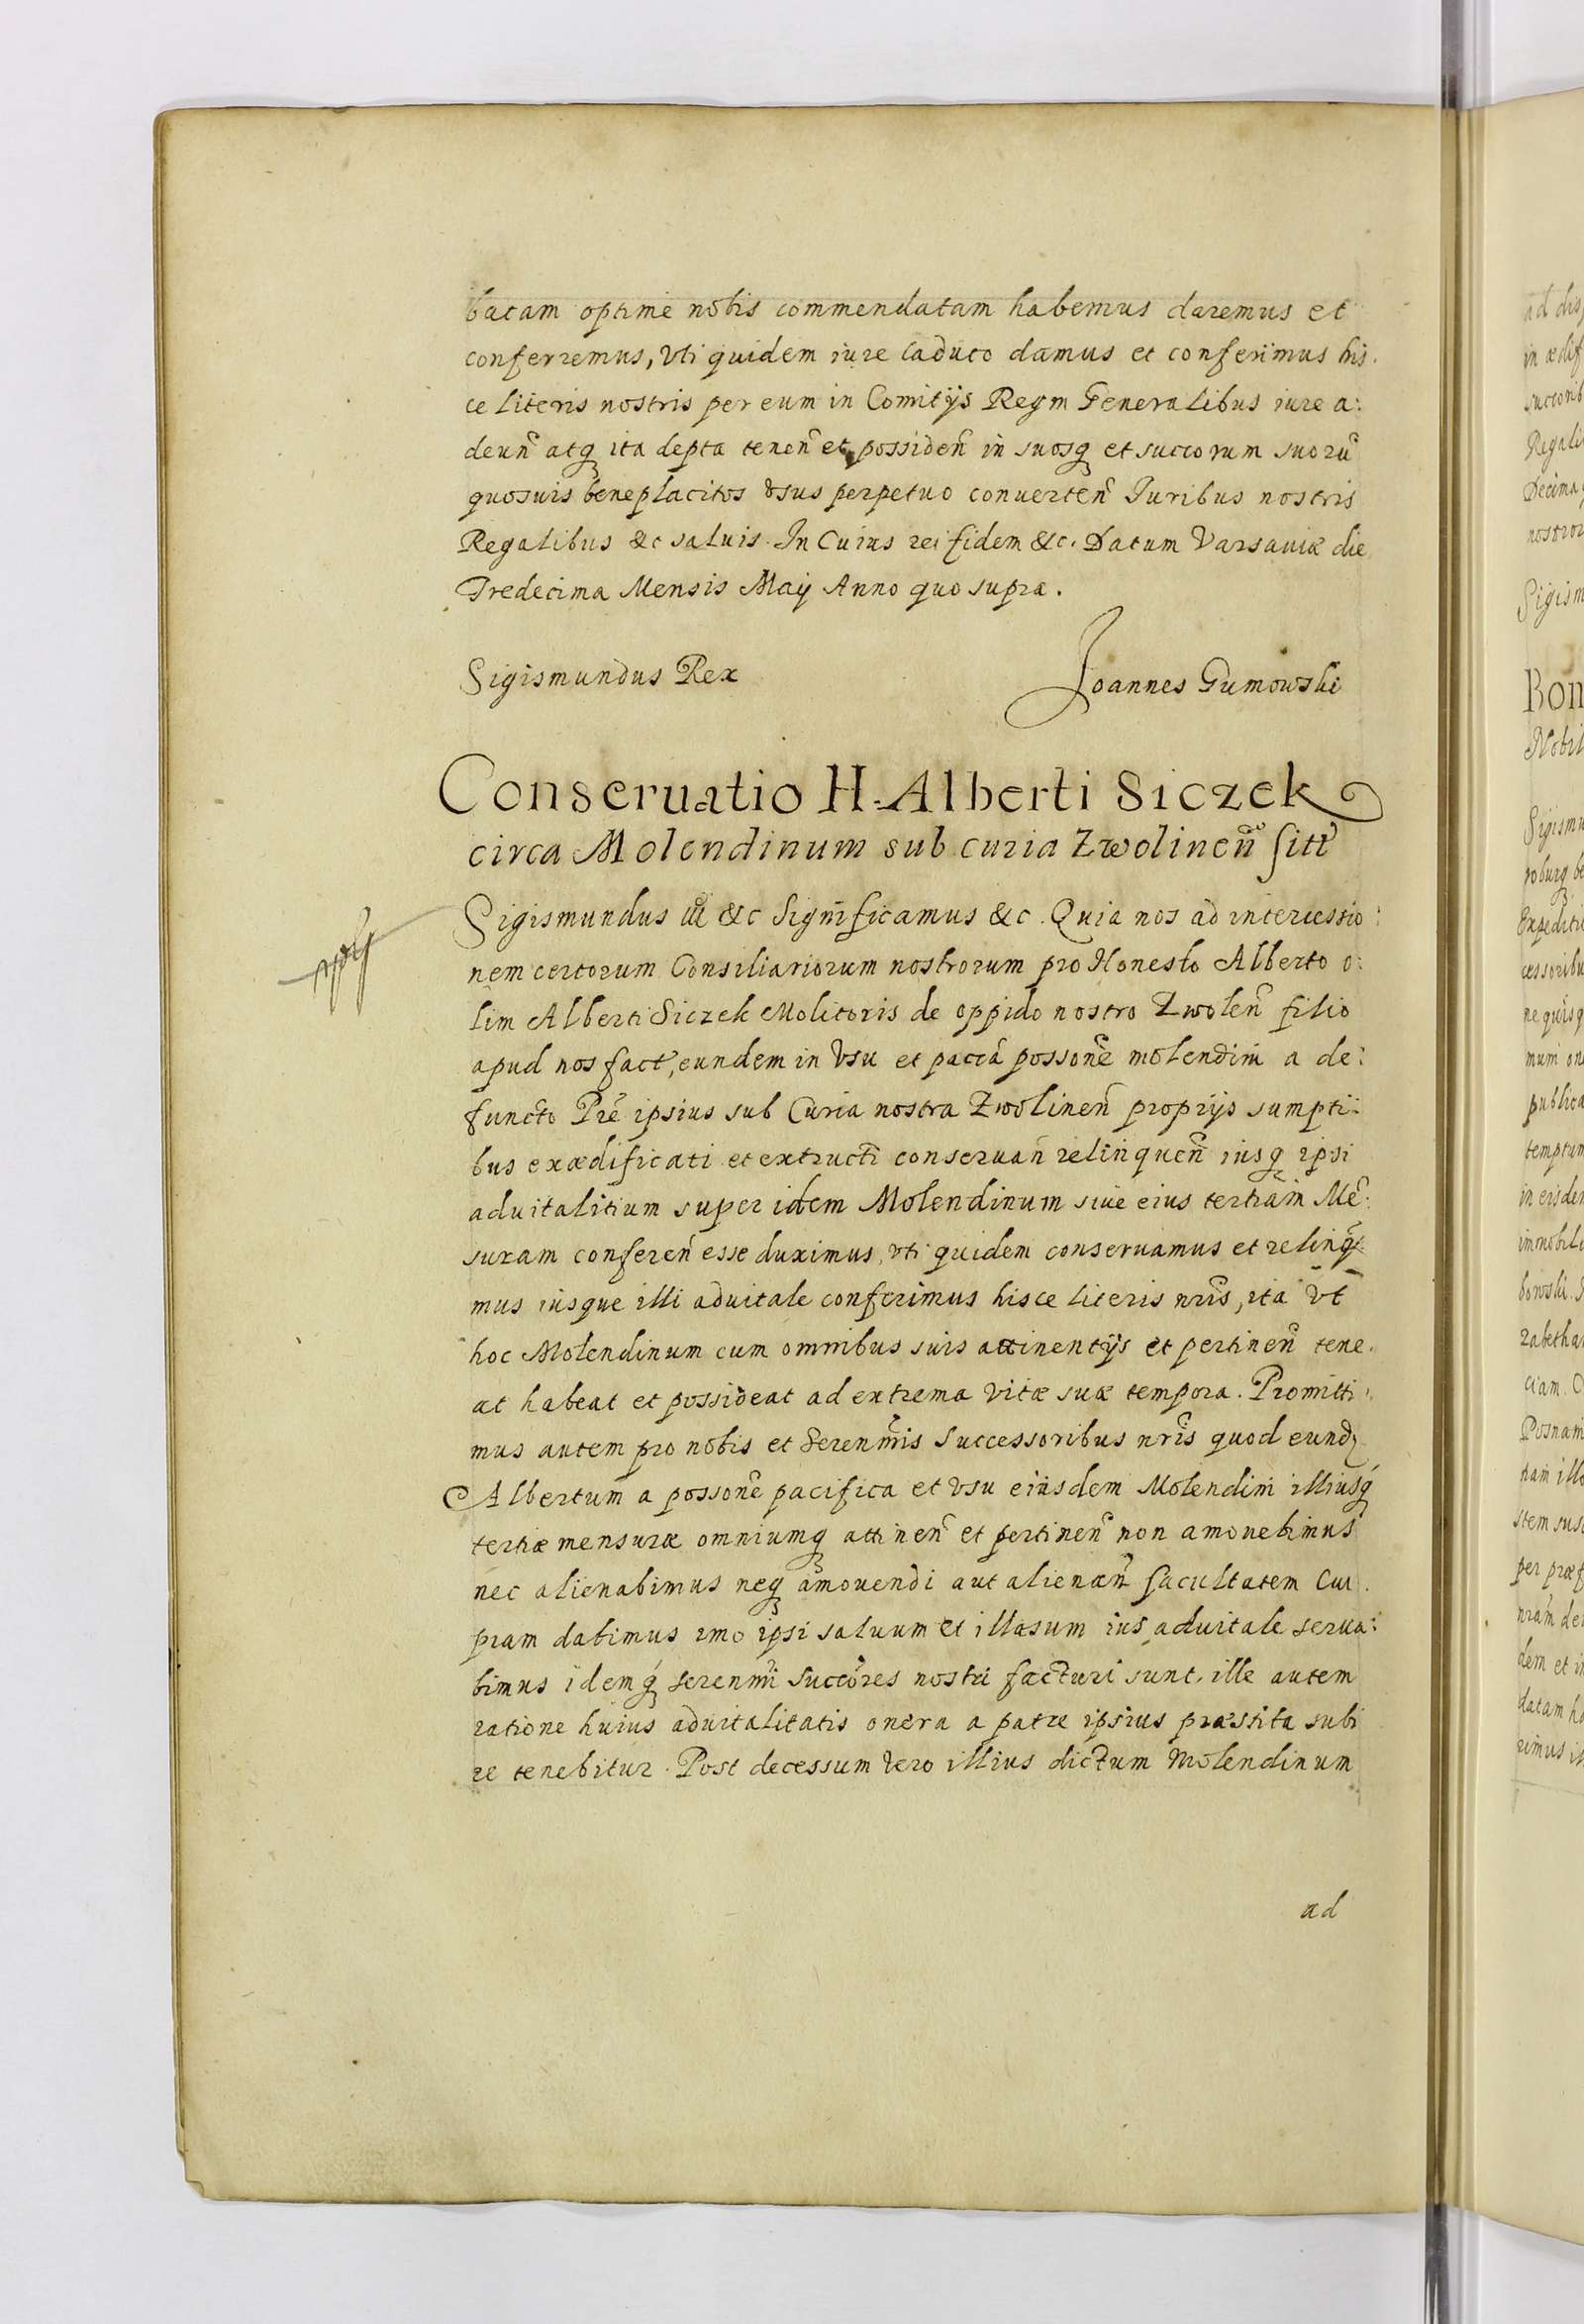 batam optime nobis commendatam habemus daremus et
conferremus, vti quidem iure caduco damus et conferimus his
ce literis nostris per eum in Comitijs Regni Generalibus iure a:
deuñ atq ita depta teneñ et possideñ in suosq et succorum suorũ
quosuis beneplacitos vsus perpetuo conuerteñ Iuribus nostris
Regalibus &c saluis. In Cuius rei fidem &c. Datum Varsauiæ die
Tredecima Mensis Maij Anno quo supra.
Sigismundus Rex
Joannes Gumowski
Conseruatio H. Alberti Siczek
circa Molendinum sub curia Zwolineñ sitĩ
Sigismundus III &c Significamus &c. Quia nos ad intercessio:
nem certorum Consiliariorum nostrorum pro Honesto Alberto o:
lim Alberti Siczek Molitoris de oppido nostro Zwoleñ filio
apud nos fact, eundem in vsu et paccã possonẽ molendini a de:
functo Prẽ ipsius sub Curia nostra Zwolineñ proprijs sumpti:
bus exædificati et extructi conseruañ relinqueñ iusq ipsi
aduitalitium super idem Molendinum siue eius tertiam Mẽ:
suram confereñ esse duximus, vti quidem conseruamus et relinq̃
mus iusque illi aduitale conferimus hisce literis nrĩs, ita vt
hoc Molendinum cum omnibus suis attinentijs et pertineñ tene.
at habeat et possideat ad extrema vitæ suæ tempora. Promitti
mus autem pro nobis et Serenm̃is Successoribus nrĩs quod eund
Albertum a possonẽ pacifica et vsu eiusdem Molendini illiusq
tertiæ mensuræ omniumq attineñ et pertineñ non amouebimus
nec alienabimus neq amouendi aut alienañ facultatem Cui
piam dabimus imo ipsi saluum et illæsum ius aduitale serua:
bimus idemq serenm̃i Succõres nostri facturi sunt, ille autem
ratione huius aduitalitatis onera a patre ipsius præstita subi
re tenebitur. Post decessum vero illius dictum Molendinum
ad